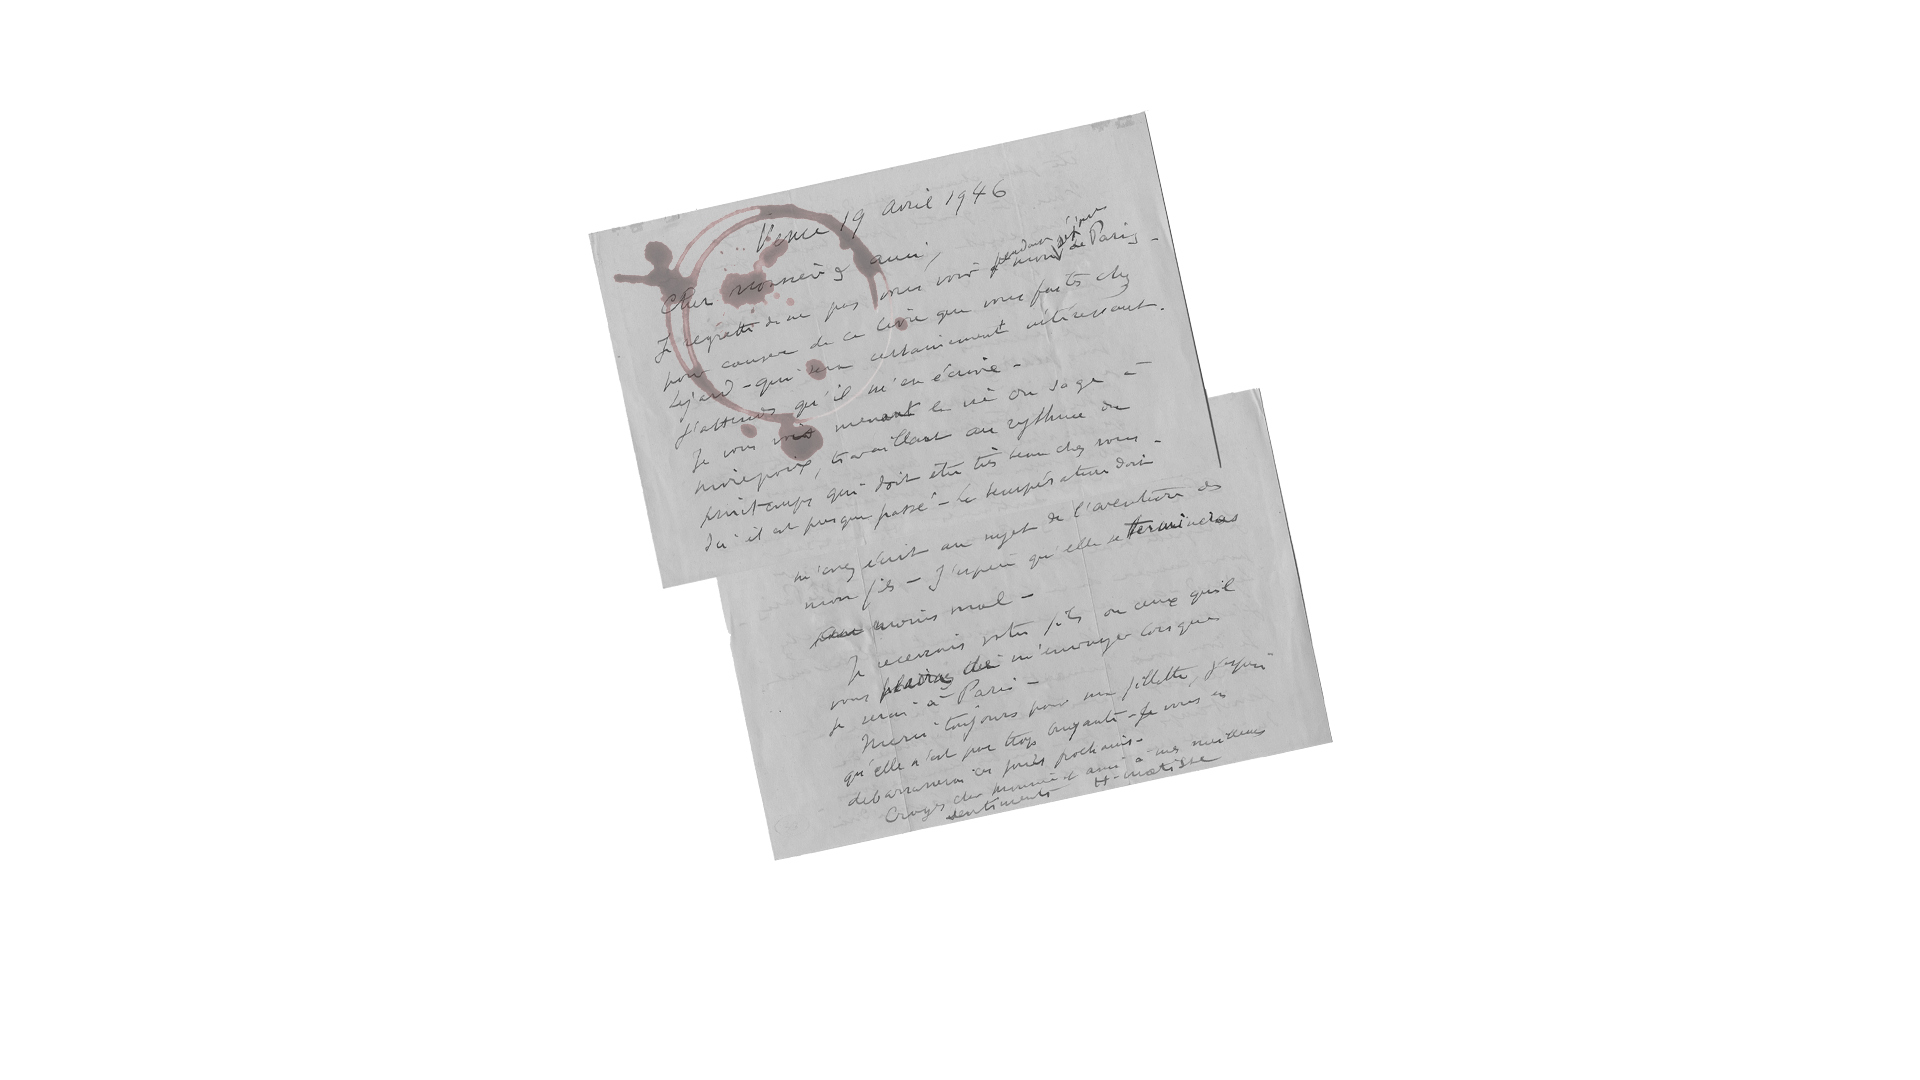 Vence 19 avril 1946
Cher Monsieur & ami,
Je regrette de ne pas vous voir pendant mon séjour de Paris -
pour causer de ce livre que vous faites chez
Lejard - qui sera certainement intéressant.
J'attends qu'il m'en écrive -
Je vous vois menant la vie du sage à
Mirepoix, travaillant au rythme du
printemps qui doit être très beau chez vous -
Ici il est presque passé - la température doit
m'avez écrit au sujet de l'aventure de
mon fils - J'espère qu'elle se terminera
moins mal -
Je recevrais votre fils ou ceux qu'il
vous plaira de m'envoyer lorsque
je serai à Paris -
Merci toujours pour ma fillette, j'espère
qu'elle n'est pas trop bruyante - Je vous en
débarrasserai ces jours prochains -
Croyez cher Monsieur et ami à mes meilleurs
sentiments H. Matisse